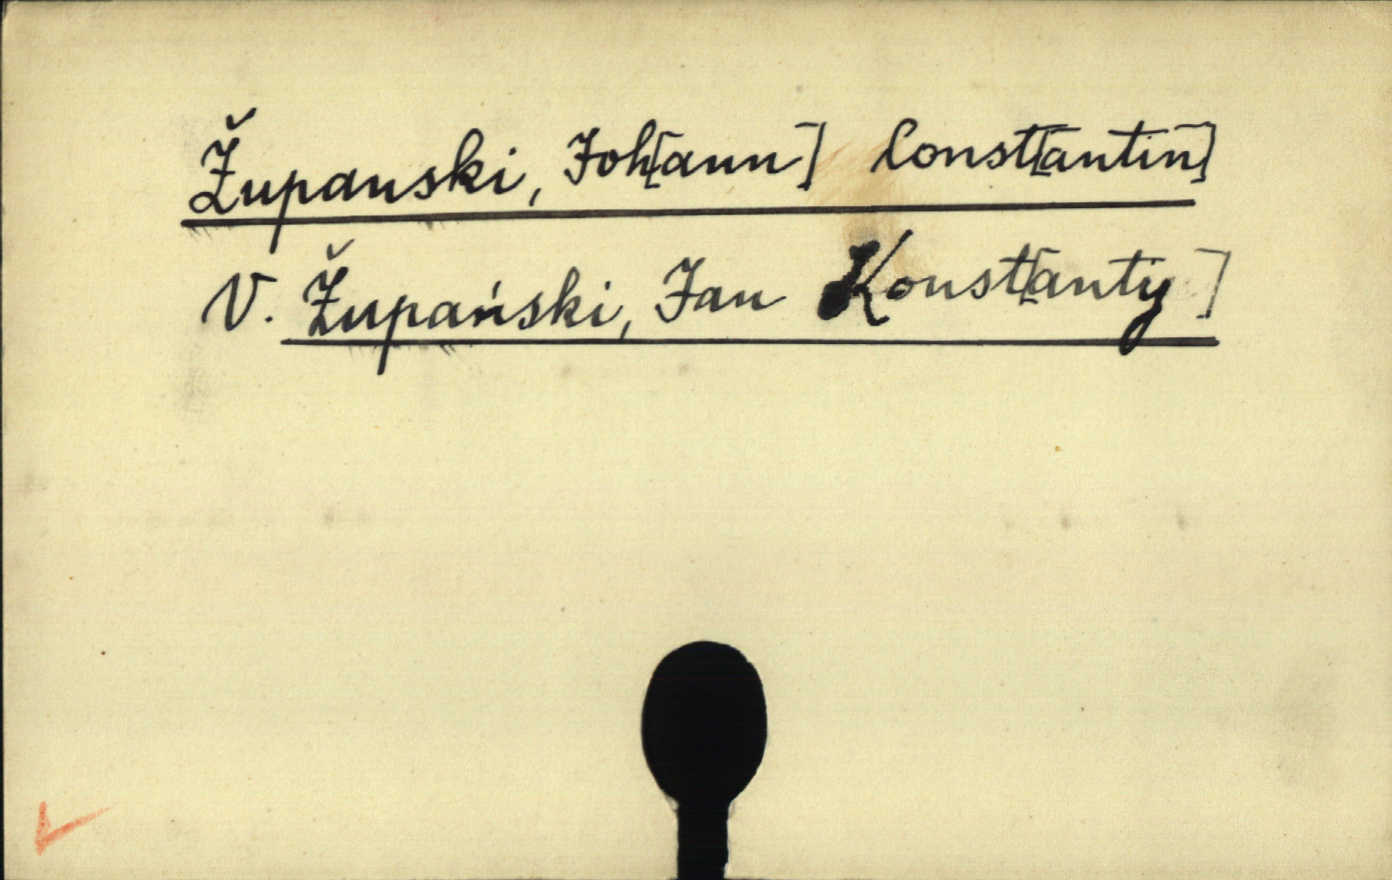 Županski, Joh[ann] Const[antin]
V. Župański, Jan Konst[anty]